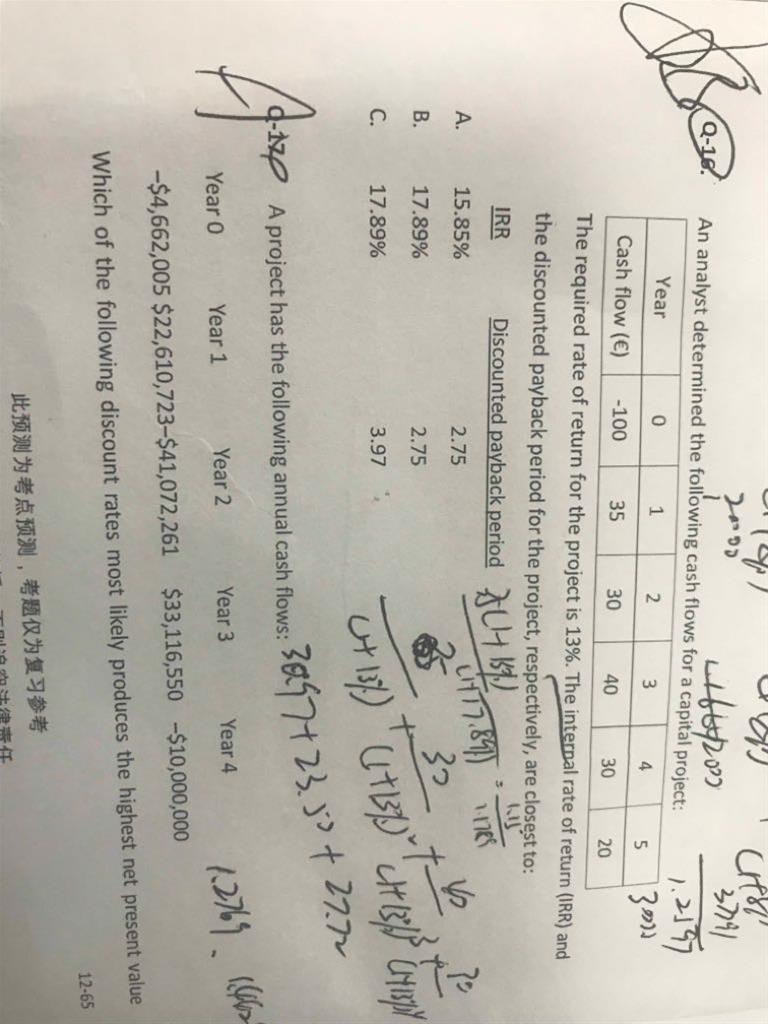 2000
3.791
1.2597
Q-16. An analyst determined the following cash flows for a capital project:
Year 0 1 2 3 4 5
Cash flow (€) -100 35 30 40 30 20
The required rate of return for the project is 13%. The internal rate of return (IRR) and
the discounted payback period for the project, respectively, are closest to:
IRR Discounted payback period
A. 15.85% 2.75
B. 17.89% 2.75
C. 17.89% 3.97
(1+17.89%)
35 30 40 30
(1+13%) + (1+13%)² + (1+13%)³ + (1+13%)⁴
30.97+23.50+27.72
Q-17 A project has the following annual cash flows:
Year 0 Year 1 Year 2 Year 3 Year 4
–$4,662,005 $22,610,723–$41,072,261 $33,116,550 –$10,000,000
1.2769
Which of the following discount rates most likely produces the highest net present value
12-65
此预测为考点预测，考题仅为复习参考